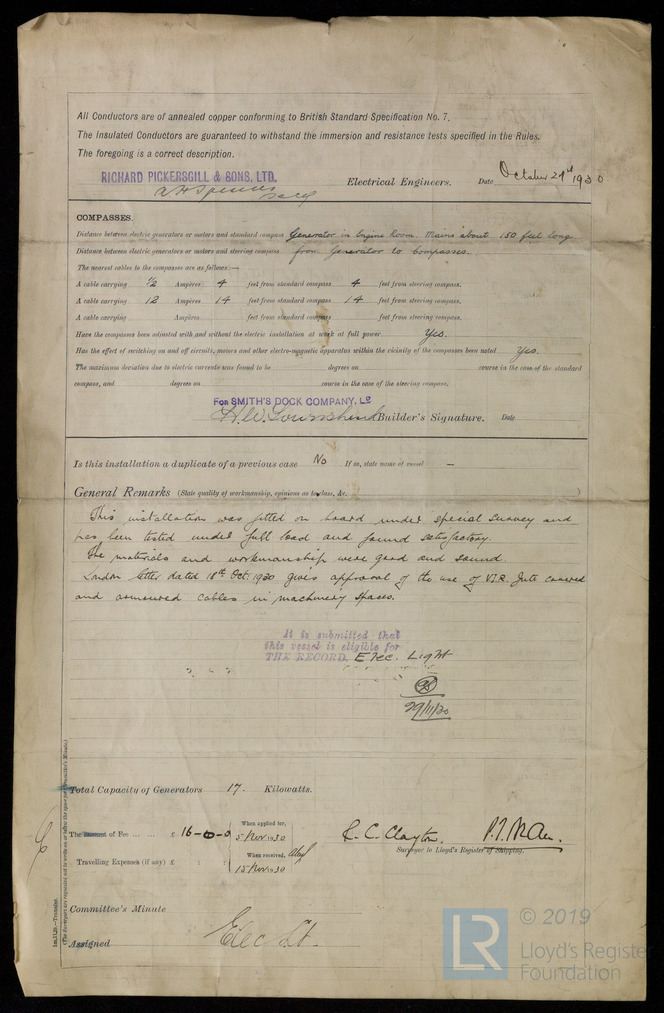 All Conductors are of annealed copper conforming to British Standard Specification No. 7.
The Insulated Conductors are guaranteed to withstand the immersion and resistance tests specified in the Rules.
The foregoing is a correct description.
RICHARD PICKERSGILL & SONS, LTD.
Electrical Engineers. Date October 29th 1930
COMPASSES.
Distance between electric generators or motors and standard compass Generator in Engine Room. Mains about 150 feet long
Distance between electric generators or motors and steering compass from Generator to compasses.
The nearest cables to the compasses are as follows:—
A cable carrying 1/2 Ampères 4 feet from standard compass 4 feet from steering compass.
A cable carrying 12 Ampères 14 feet from standard compass 14 feet from steering compass.
A cable carrying Ampères feet from standard compass feet from steering compass.
Have the compasses been adjusted with and without the electric installation at work at full power Yes.
Has the effect of switching on and off circuits, motors and other electro-magnetic apparatus within the vicinity of the compasses been noted Yes.
The maximum deviation due to electric currents was found to be degrees on course in the case of the standard
compass, and degrees on course in the case of the steering compass.
FOR SMITH'S DOCK COMPANY, LD
H.W. Townshend Builder's Signature. Date
Is this installation a duplicate of a previous case No If so, state name of vessel —
General Remarks (State quality of workmanship, opinions as to class, &c.
This installation was fitted on board under special survey and
has been tested under full load and found satisfactory.
The materials and workmanship were good and sound.
London letter dated 18th Oct. 1930 gives approval of the use of V.I.R. Jute covered
and armoured cables in machinery spaces.
It is submitted that
this vessel is eligible for
THE RECORD. Elec. Light
29/11/30
Total Capacity of Generators 17. Kilowatts.
The Amount of Fee ... ... £ 16-0-0
When applied for,
5 Nov 1930
Travelling Expenses (if any) £ : :
When received,
15 Nov 1930
R. C. Clayton.
Surveyor to Lloyd's Register of Shipping.
Committee's Minute
Assigned Elec Lt.
1m.11.29.—Transfer.
(The Surveyors are requested not to write on or below the space for Committee's Minute.)
LR © 2019
Lloyd's Register
Foundation